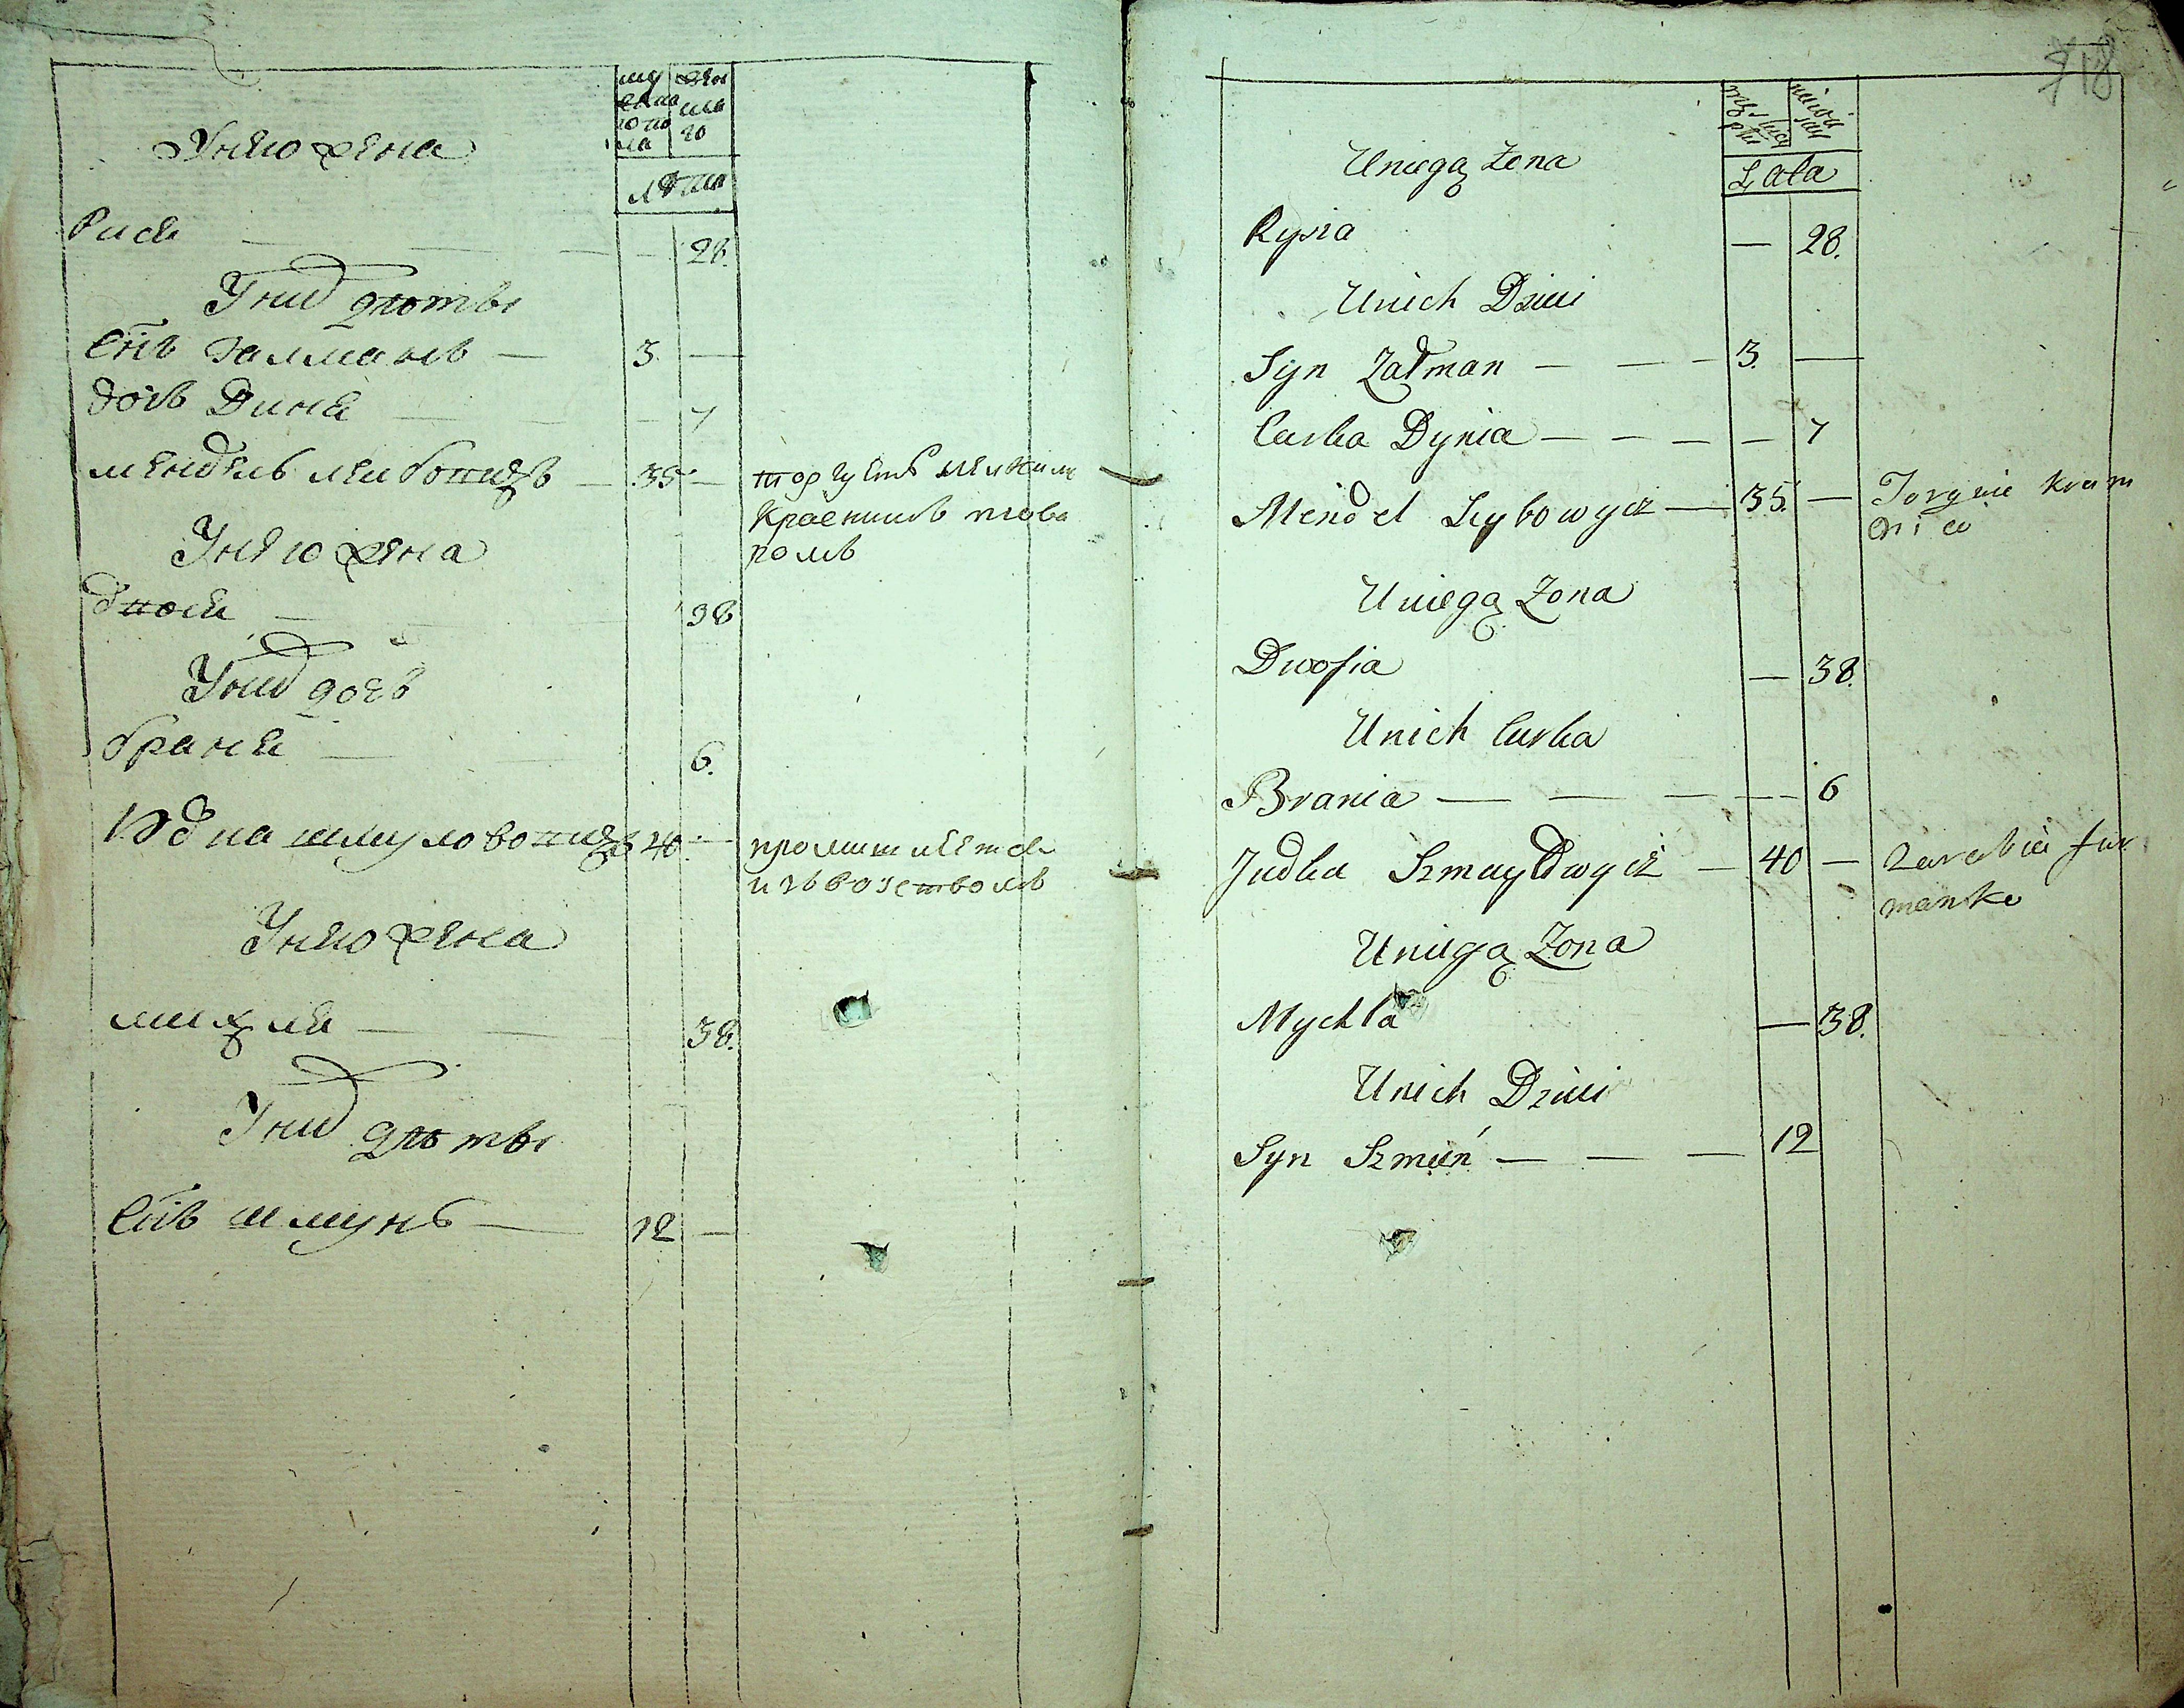 муескаго пола
женскаго
лета
Унего жена
Рися — — 28.
Уних дѣти
Снъ залманъ — 3 —
дочъ Диня — — 7
мендель лейбовичъ — 35 — торгуетъ мелкимъ
краснимъ това
ромъ
Унего жена
двося — 38
Уних дочъ
браня — 6.
Юдка шмуловичъ 40 — промишляется
извозствомъ
Унего жена
михля — 38.
Уних дѣти
Снъ шмунь — 12 —
718
Lata
Uniegą Żena
Rysia — 28.
Unich Dzieci
Syn Załman — — 3. —
Curka Dynia — — — — 7
Mendel Leybowycz — 35. — Torguie kram
nico
Uniegą Żona
Dwosia — 38.
Unich Curka
Brania — — — — 6
Judka Szmuylowycz — 40 — Zarabia fur
manko
Uniegą Żona
Mychla — 38.
Unich Dzieci
Syn Szmuń — — — 12